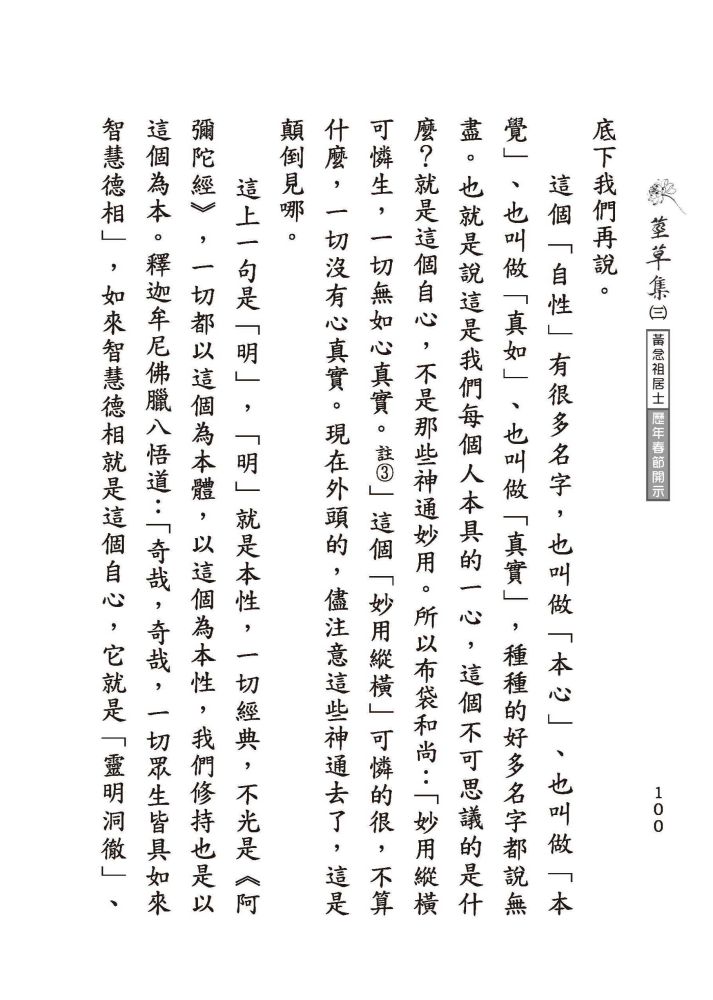 莖草集㈢ 黃念祖居士 歷年春節開示
100
底下我們再說。
這個「自性」有很多名字，也叫做「本心」、也叫做「本
覺」、也叫做「真如」、也叫做「真實」，種種的好多名字都說無
盡。也就是說這是我們每個人本具的一心，這個不可思議的是什
麼？就是這個自心，不是那些神通妙用。所以布袋和尚：「妙用縱橫
可憐生，一切無如心真實。註③」這個「妙用縱橫」可憐的很，不算
什麼，一切沒有心真實。現在外頭的，儘注意這些神通去了，這是
顛倒見哪。
這上一句是「明」，「明」就是本性，一切經典，不光是《阿
彌陀經》，一切都以這個為本體，以這個為本性，我們修持也是以
這個為本。釋迦牟尼佛臘八悟道：「奇哉，奇哉，一切眾生皆具如來
智慧德相」，如來智慧德相就是這個自心，它就是「靈明洞徹」、